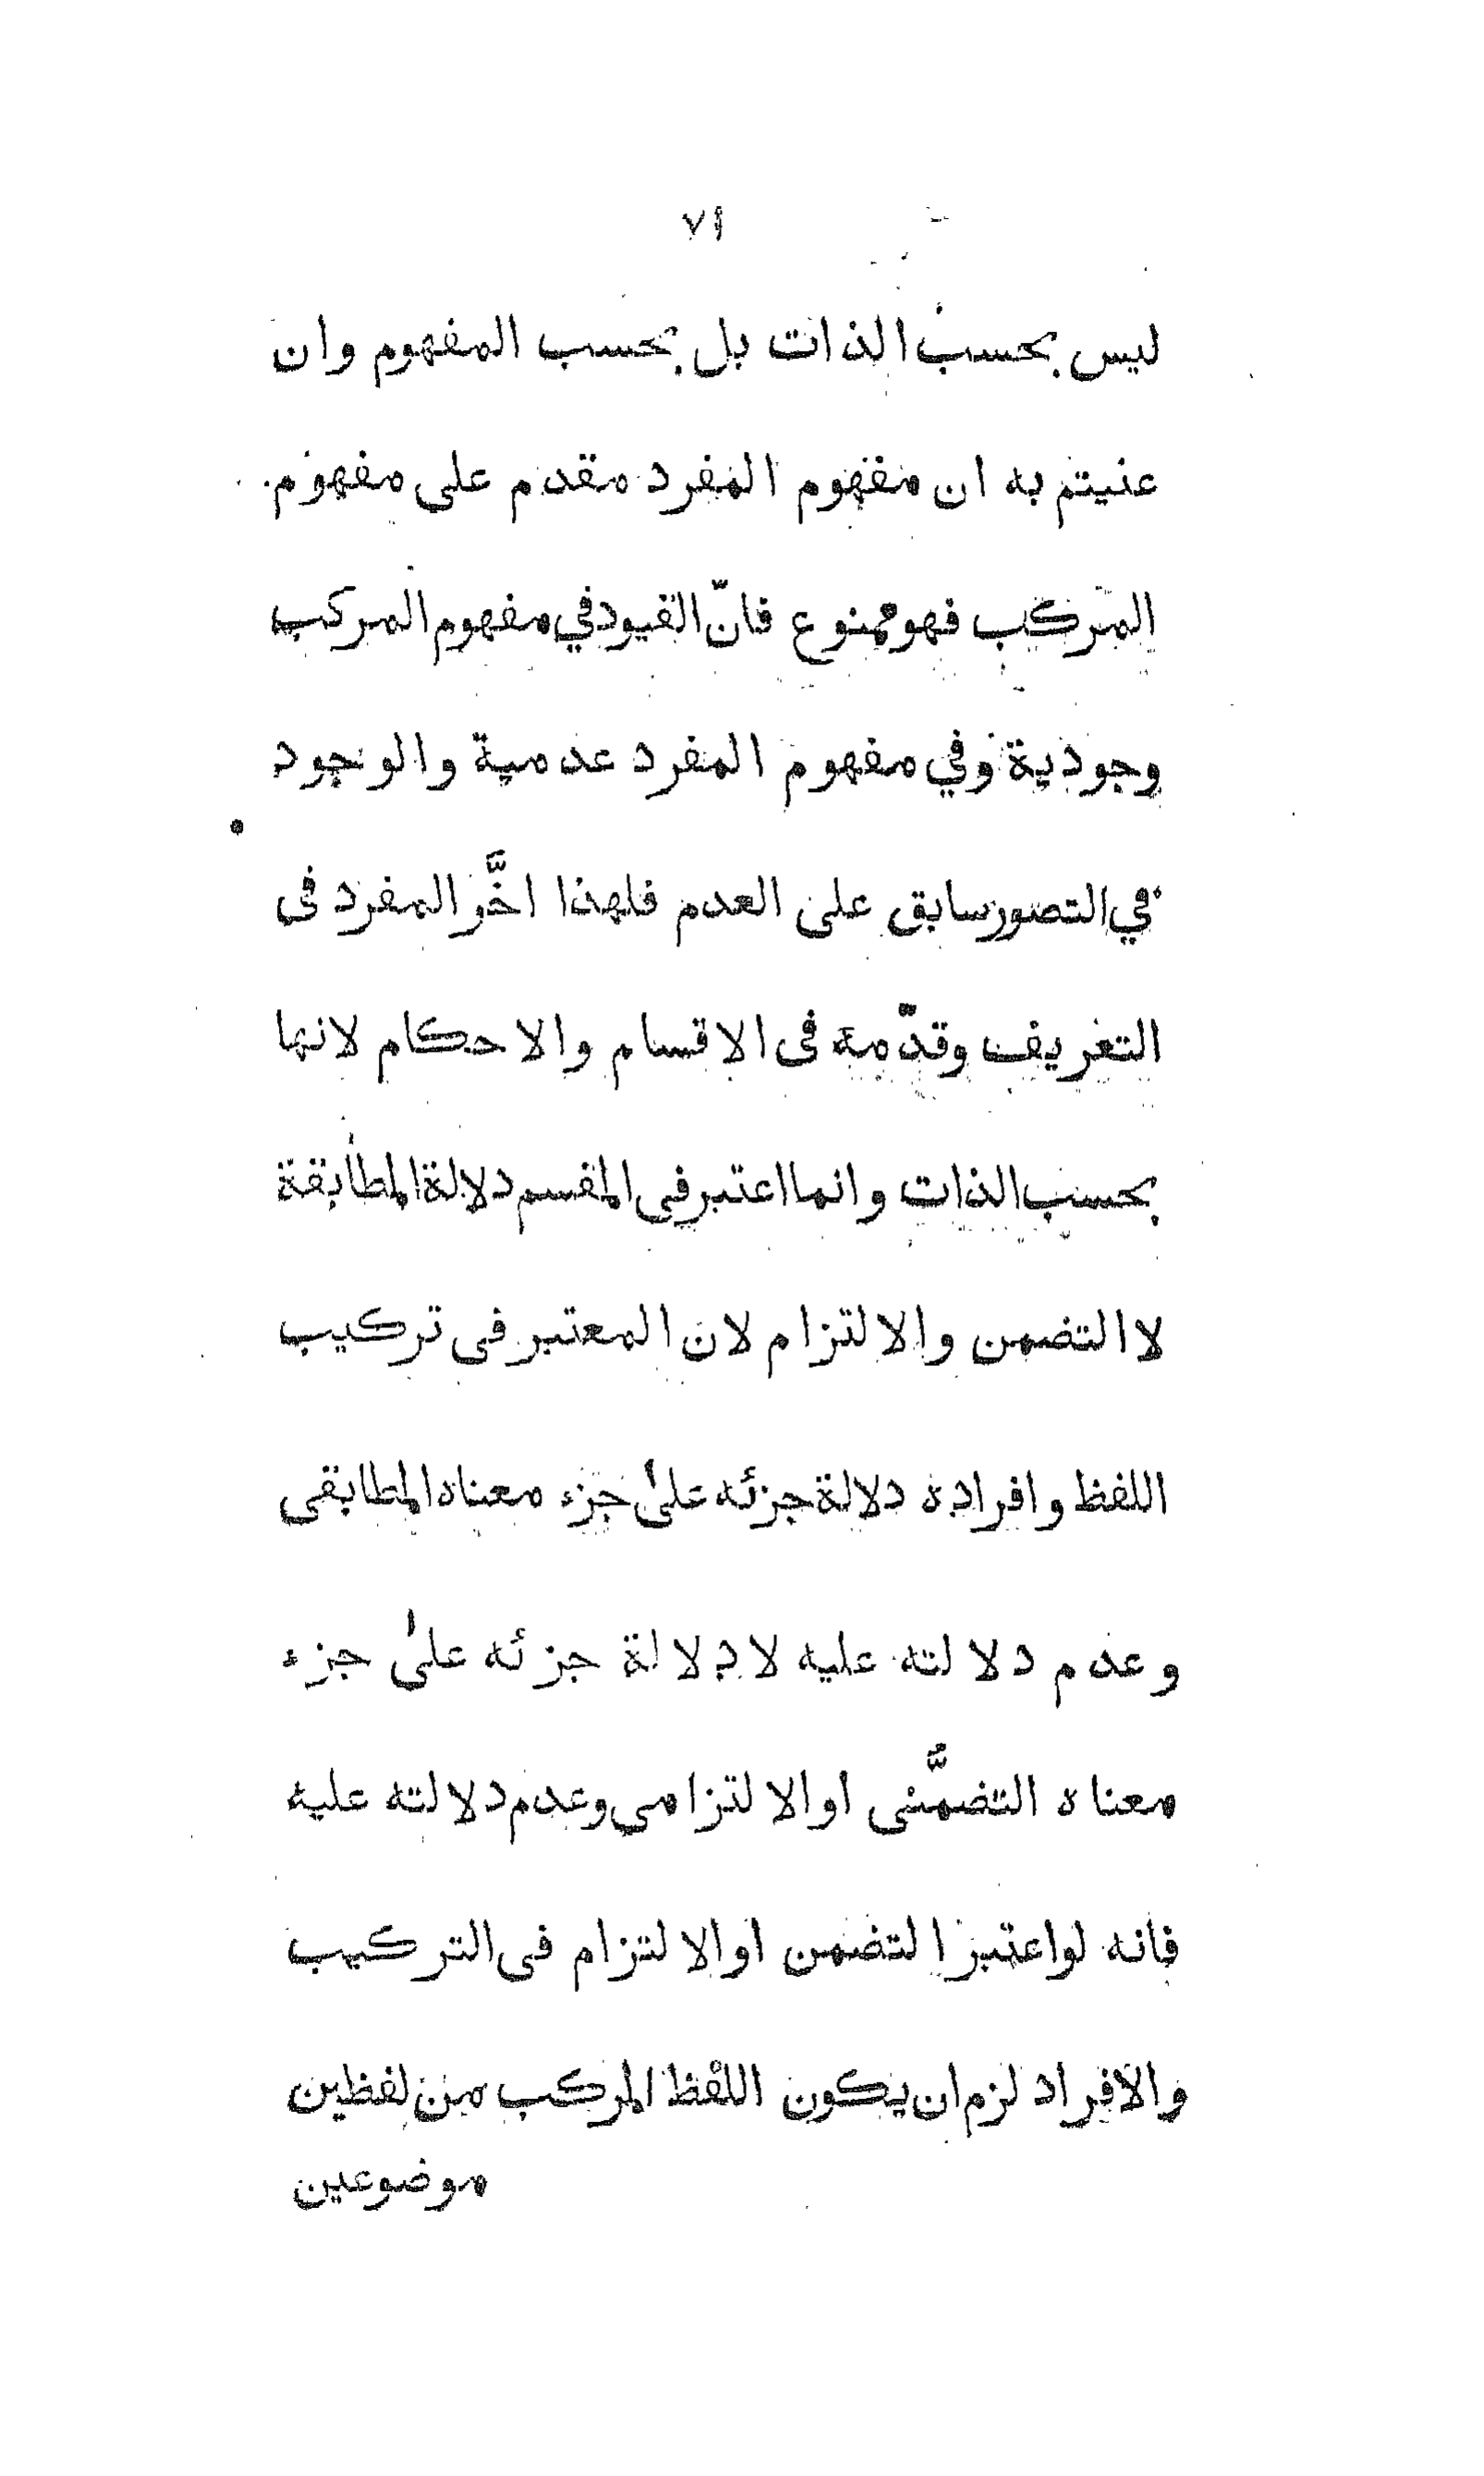 ٧١
ليس بحسب الذات بل بحسب المفهوم وان
عنيتم به ان مفهوم المفرد مقدم على مفهوم
المركب فهو ممنوع فانّ القيود في مفهوم المركب
وجودية وفي مفهوم المفرد عدمية والوجود
في التصور سابق على العدم فلهذا اخَّر المفرد فى
التعريف وقدّمه فى الاقسام والاحكام لانها
بحسب الذات وانما اعتبر فى المقسم دلالة المطابقة
لا التضمن والالتزام لان المعتبر فى تركيب
اللفظ وافراده دلالة جزئه علىٰ جزء معناه المطابقى
وعدم دلالته عليه لا دلالة جزئه علىٰ جزء
معناه التضمُّنى او الالتزامى وعدم دلالته عليه
فانه لو اعتبر التضمن او الالتزام فى التركيب
والافراد لزم ان يكون اللفظ المركب من لفظين
موضوعين